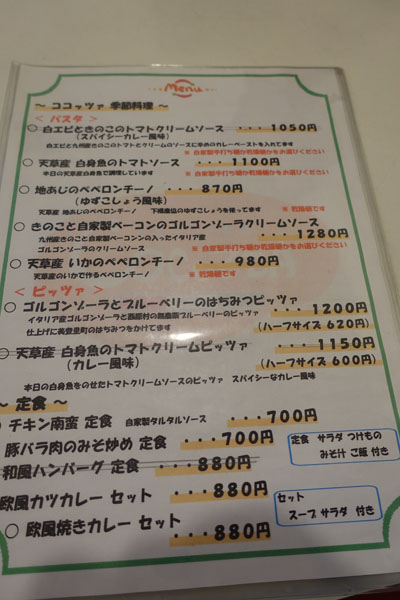 Menu
～ ココッツァ 季節料理 ～
＜ パスタ ＞
○ 白エビときのこのトマトクリームソース ・・・１０５０円
（スパイシーカレー風味）
白エビと九州産きのことトマトとクリームのソースに辛めのカレーペーストを入れてます
※ 自家製手打ち麺か乾燥麺かをお選びください
○ 天草産 白身魚のトマトソース ・・・１１００円
本日の天草産白身魚で調理しています
※ 自家製手打ち麺か乾燥麺かをお選びください
○ 地あじのペペロンチーノ ・・・８７０円
（ゆずこしょう風味）
天草産 地あじのペペロンチーノ 下郷産のゆずこしょうを使ってます ※ 乾燥麺です
○ きのこと自家製ベーコンのゴルゴンゾーラクリームソース
・・・１２８０円
九州産きのこと自家製ベーコンの入ったイタリア産
ゴルゴンゾーラのクリームソース
※ 自家製手打ち麺か乾燥麺かをお選びください
○ 天草産 いかのペペロンチーノ ・・・９８０円
天草産のいかで作るペペロンチーノ
※ 乾燥麺です
＜ ピッツァ ＞
○ ゴルゴンゾーラとブルーベリーのはちみつピッツァ
・・・１２００円
イタリア産ゴルゴンゾーラのブルーベリーのピッツァ
仕上げに美里町のはちみつをかけてます
（ハーフサイズ ６２０円）
○ 天草産 白身魚のトマトクリームピッツァ ・・・１１５０円
（カレー風味）
（ハーフサイズ ６００円）
本日の白身魚をのせたトマトクリームソースのピッツァ スパイシーなカレー風味
～ 定食 ～
○ チキン南蛮 定食 自家製タルタルソース ・・・７００円
豚バラ肉のみそ炒め 定食 ・・・７００円
和風ハンバーグ 定食 ・・・８８０円
定食 サラダ つけもの
みそ汁 ご飯 付き
欧風カツカレー セット ・・・８８０円
○ 欧風焼きカレー セット ・・・８８０円
セット
スープ サラダ 付き